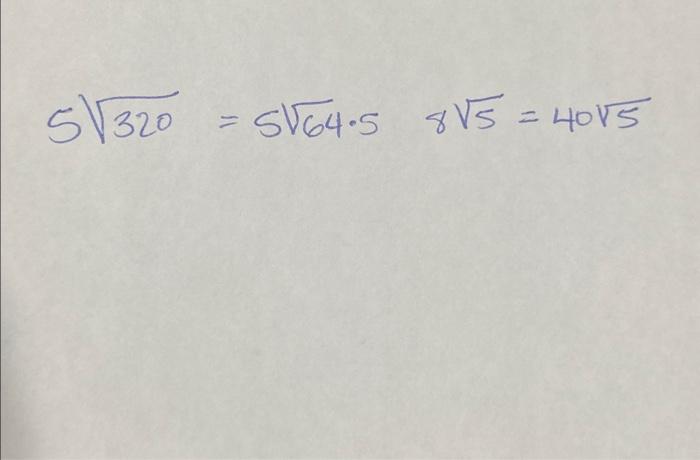 5√320 = 5√64·5 8√5 = 40√5